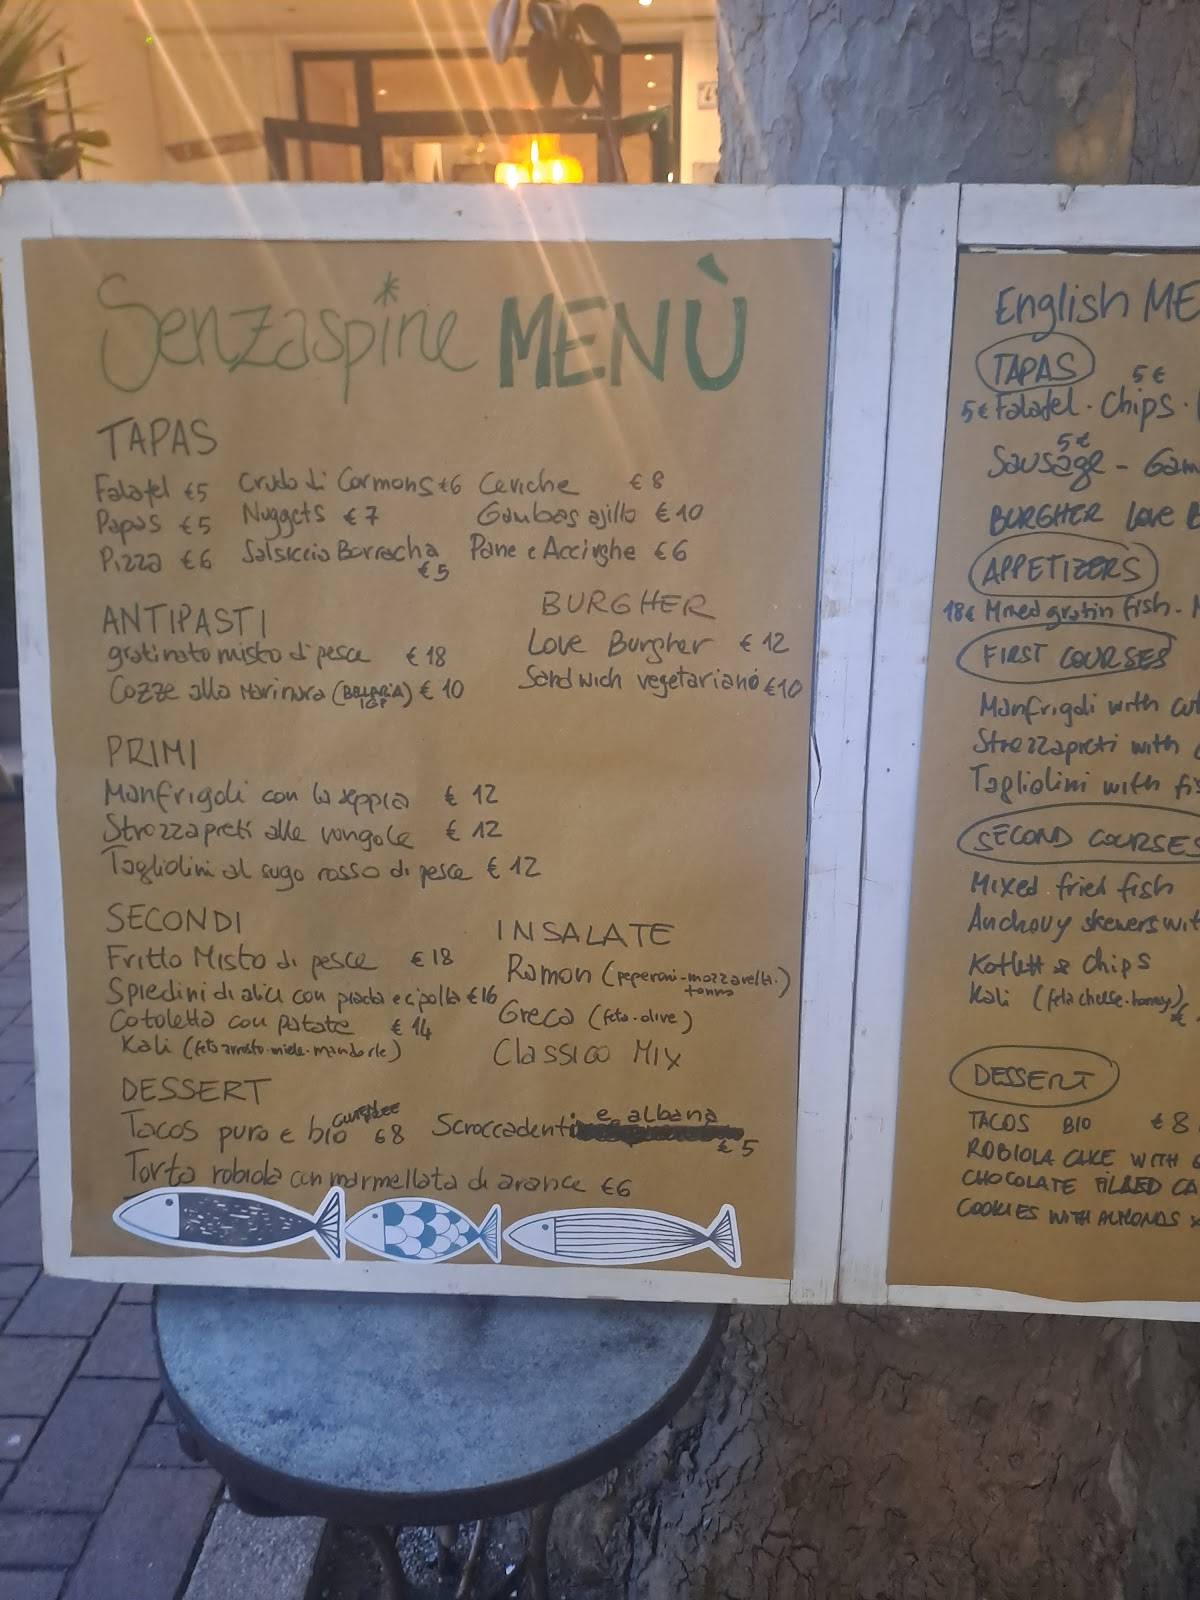 Senzaspine MENÙ
TAPAS
Falafel €5 Crudo di Cormons €6 Ceviche €8
Papas €5 Nuggets €7 Gambas ajillo €10
Pizza €6 Salsiccia Borracha €5 Pane e Acciughe €6
ANTIPASTI
gratinato misto di pesce €18
Cozze alla Marinara (BELLARIA IGP) €10
BURGHER
Love Burgher €12
Sandwich vegetariano €10
PRIMI
Manfrigoli con la seppia € 12
Strozzapreti alle vongole € 12
Tagliolini al sugo rosso di pesce € 12
SECONDI
Fritto Misto di pesce €18
Spiedini di alici con piada e cipolla €16
Cotoletta con patate € 14
Kali (feta arrosto-miele-mandorle)
INSALATE
Ramon (peperoni-mozzarella-tonno)
Greca (feta-olive)
Classico Mix
DESSERT
Tacos puro e bio €8 Scroccadenti e albana €5
Torta robiola con marmellata di arance €6
English ME
TAPAS
5€ Falafel · Chips 5€ ·
Sausage 5€ - Gam
BURGHER LOVE B
APPETIZERS
18€ Mixed gratin fish - M
FIRST COURSES
Manfrigoli with cut
Strozzapreti with
Tagliolini with fis
SECOND COURSES
Mixed fried fish
Anchovy skewers wit
Kotlett & Chips
Kali (feta cheese-honey) €
DESSERT
TACOS BIO €8
ROBIOLA CAKE WITH
CHOCOLATE FILLED CA
COOKIES WITH ALMONDS